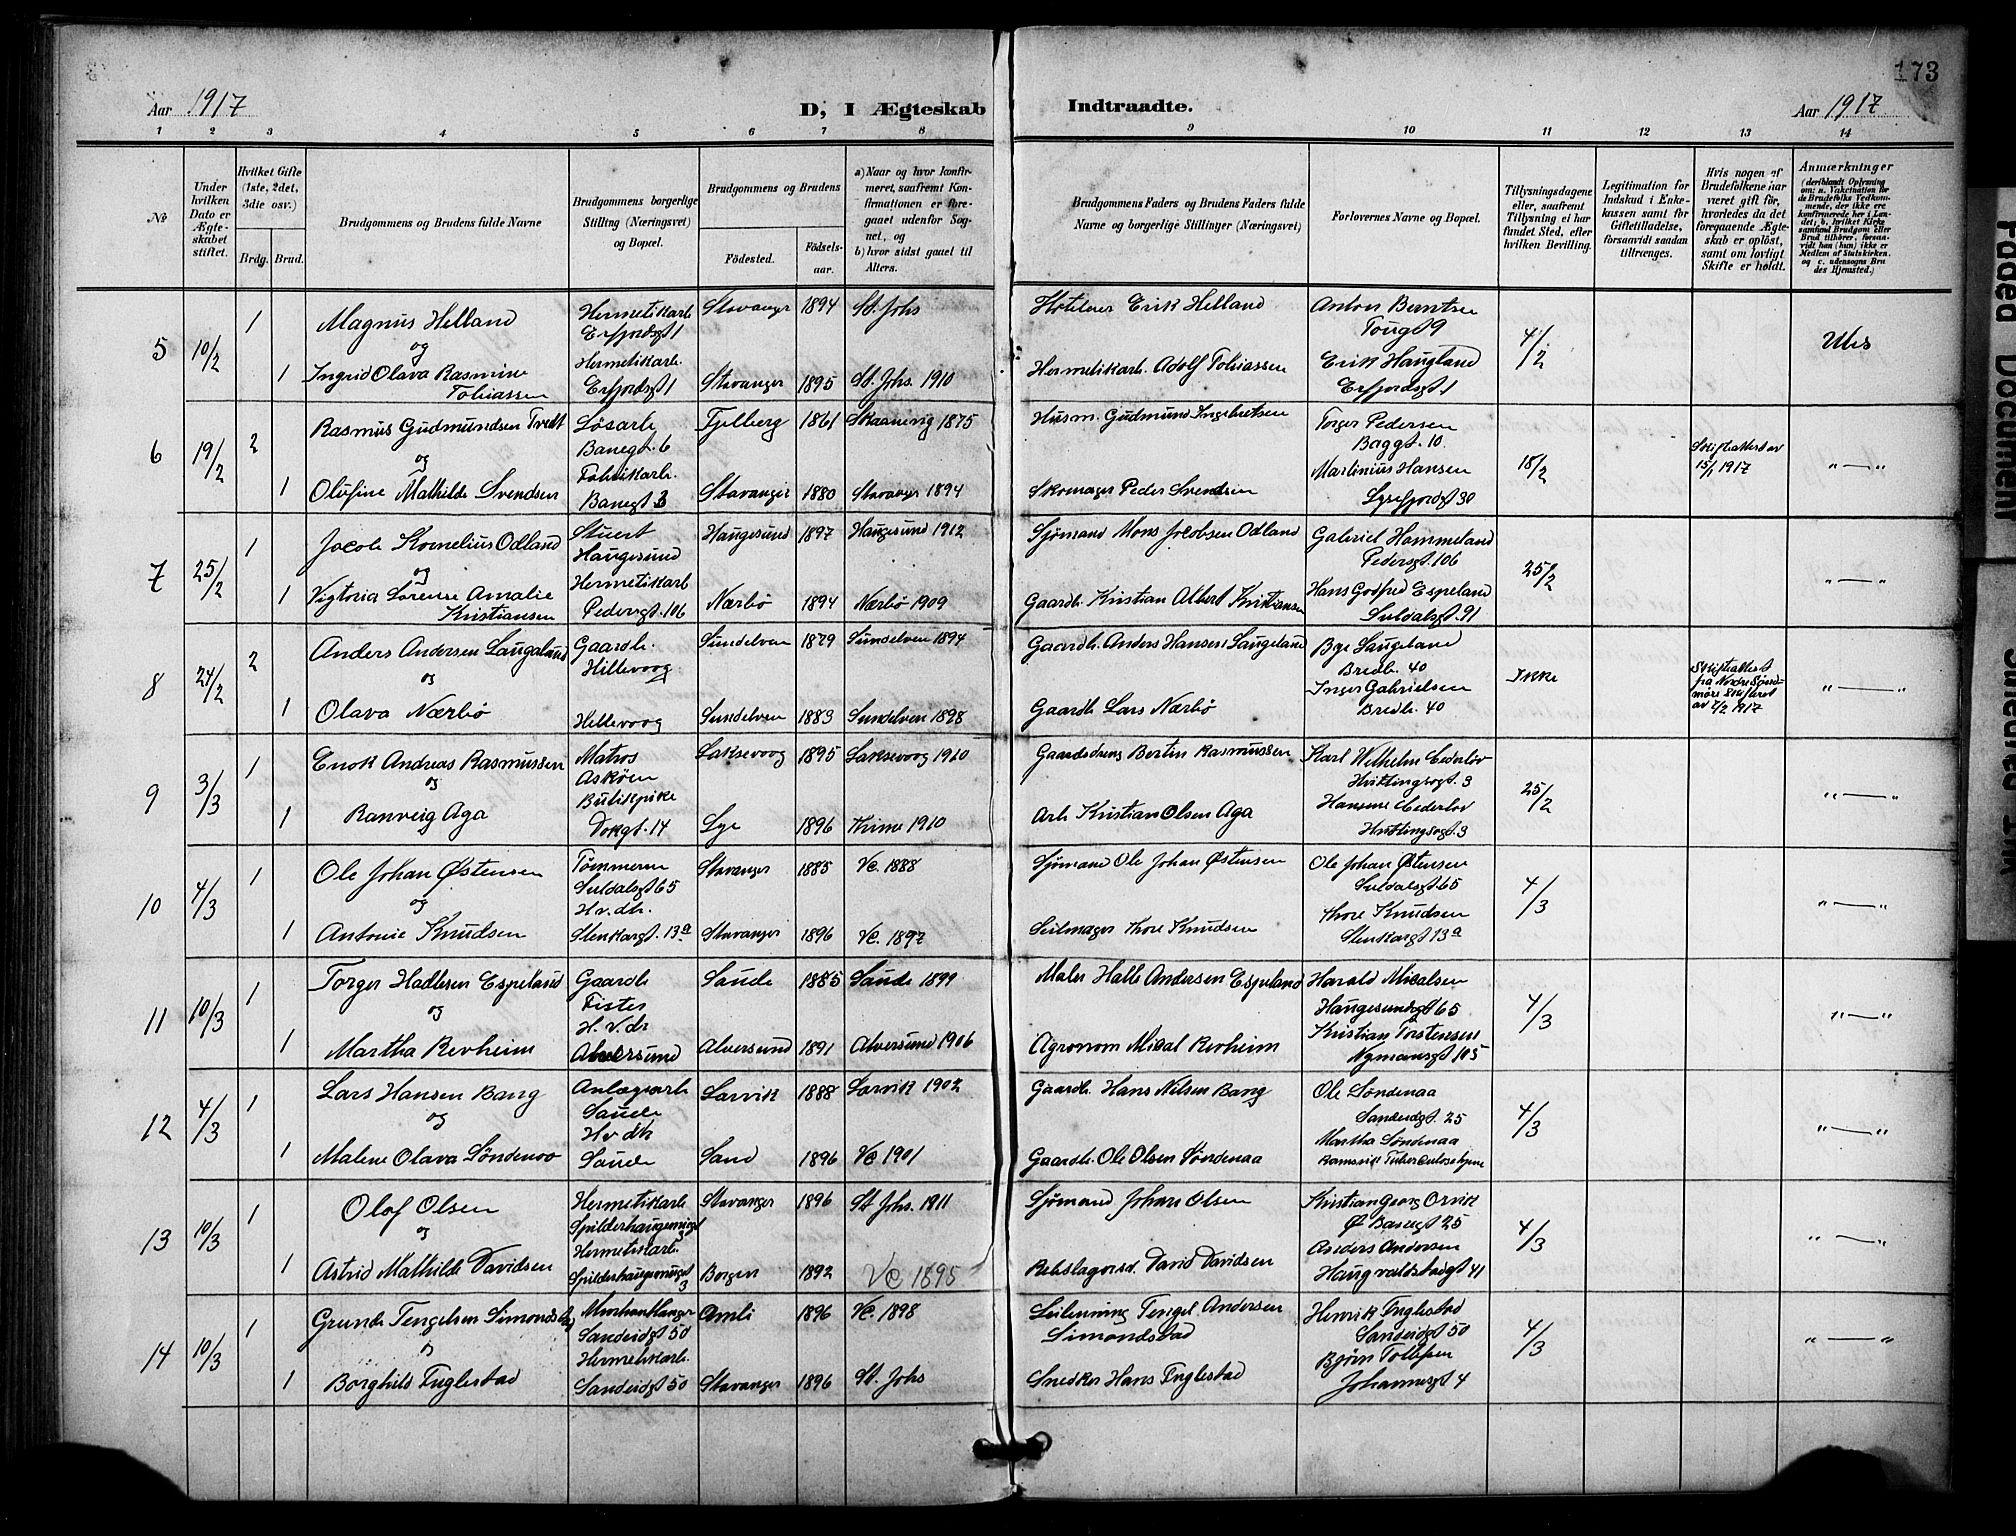 173
Aar 1917
D, I Ægteskab Indtraadte.
Aar 1917
1 2 3 4 5 6 7 8 9 10 11 12 13 14
No
Under hvilken Dato er Ægteskabet stiftet.
Hvilket Gifte (1ste, 2det, 3die osv.)
Brdg. Brud.
Brudgommens og Brudens fulde Navne
Brudgommens borgerlige Stilling (Næringsvei) og Bopæl.
Brudgommens og Brudens
Fødested.
Fødselsaar.
a) Naar og hvor konfirmeret, saafremt Konfirmationen er foregaaet udenfor Sognet, og
b) hvor sidst gaaet til Alters.
Brudgommens Faders og Brudens Faders fulde Navne og borgerlige Stillinger (Næringsvei)
Forlovernes Navne og Bopæl.
Tillysningsdagene eller, saafremt Tillysning ei har fundet Sted, efter hvilken Bevilling.
Legitimation for Indskud i Enkekassen samt for Giftetilladelse, forsaavidt saadan tiltrænges.
Hvis nogen af Brudefolkene har været gift før, hvorledes da det foregaaende Ægteskab er opløst, samt om lovligt Skifte er holdt.
Anmærkninger
(deriblandt Oplysning om: a. Vakcination for de Brudefolks Vedkommende, der ikke ere konfirmerede her i Landet; b. hvilket Kirkesamfund Brudgom eller Brud tilhører, forsaavidt han (hun) ikke er Medlem af Statskirken, og c. udensogns Brudes Hjemsted.)
5 10/2 1 Magnus Helland Hermetikarb. Erfjordsgt 1 Stavanger 1894 St. Johs Erik Helland Anton Berntsen 9 4/2 Uts
og
1 Ingrid Olava Rasmine Tobiassen Hermetikarb. Erfjordsgt 1 Stavanger 1895 St. Johs. 1910 Hermetikarb. Adolf Tobiassen Erik Haugland Erfjordsgt 1
6 19/2 2 Rasmus Gudmundsen Tvedt Løsarb. Banegt. 6 Fjelberg 1861 Skaanevig 1875 Husm. Gudmund Ingebretsen Torger Pedersen Baggt. 10. 18/2 Skifteattest av 15/1 1917 " — "
og
1 Olufine Mathilde Svendsen Fabrikarb. Banegt 3 Stavanger 1880 Stavanger 1894 Skomager Peder Svendsen Martinius Hansen Lysefjordgt 30
7 25/2 1 Jacob Kornelius Odland Stuert Haugesund Haugesund 1897 Haugesund 1912 Sjømand Mons Jacobsen Odland Gabriel Hammeland Pedersgt. 106 25/2 " — "
og
1 Vigtoria Lorense Amalie Kristiansen Hermetikarb Pedersgt. 106 Nærbø 1894 Nærbø 1909 Gaardb. Kristian Albert Kristiansen Hans Godfred Espeland Suldalsgt. 91
8 24/2 2 Anders Andersen Laugeland Gaardb. Hillevaag Sundelven 1879 Sundelven 1894 Gaardb. Anders Hansen Laugeland Laugeland Bredb. 40 Ikke Skifteattest fra Nordre Søndmøre Skifteret av 7/2 1917 " — "
og
1 Olava Nærbø Hillevoog Sundelven 1883 Sundelven 1898 Gaardb Lars Nærbø Inger Gabrielsen Bredb. 40
9 3/3 1 Enok Andreas Rasmussen Matros Askøen Laksevoog 1895 Laksevoog 1910 Gaardsdreng Bertin Rasmussen Karl Wilhelm Cederlöv Hvitingsøgt. 3 25/2 " — "
og
1 Ranveig Aga Butikpike Dokgt. 14 Lye 1896 Time 1910 Arb Kristian Olsen Aga Hansine Cederlöv Hvitingsøgt. 3
10 4/3 1 Ole Johan Østensen Tømmerm Suldalsgt 65 Stavanger 1885 Vc. 1888 Sjømand Ole Johan Østensen Ole Johan Østensen Suldalsgt 65 4/3 " — "
og
1 Antonie Knudsen H.v.dtr. Stenkargt. 13a Stavanger 1896 Vc. 1897 Seilmager Thore Knudsen Thore Knudsen Stenkargt 13a
11 10/3 1 Torger Hadlesen Espeland Gaardb Fister Saude 1885 Saude 1899 Maler Halle Andersen Espeland Harald Micalsen Haugesundsgt 65 4/3 " — "
og
1 Martha Revheim H.v.dr Alversund Alversund 1891 Alversund 1906 Agronom Mical Revheim Kristian Torstensen Nymansgt 105
12 4/3 1 Lars Hansen Bang Anlægsarb Saude Larvik 1888 Larvik 1902 Gaardb. Hans Nilsen Bang Ole Søndenaa Sandeidgt. 25 4/3 " — "
og
1 Malene Olava Søndenaa Hv dtr Saude Sand 1896 Vc 1901 Gaardb. Ole Olsen Søndenaa Martha Søndenaa Ramsvik Tuberculosehjem
13 10/3 1 Olaf Olsen Hermetikarb Stavanger 1896 St Johs. 1911 Sjømand Johan Olsen Kristian Georg Orvik Ø Banegt 25 4/3 " — "
og
1 Astrid Mathilde Davidsen Hermetikarb. 3 Bergen 1892 Vc 1895 Rebslagersv. David Davidsen Anders Andersen Haugvaldstadgt 41
14 10/3 1 Grunde Tengelsen Simonstad Sandeidgt 50 Amli 1896 Vc. 1898 Tengel Andersen Simondstad Henrik Fuglestad Sandeidgt 50 4/3 " — "
og
1 Borghild Fuglestad Hermetikarb. Sandeidgt 50 Stavanger 1896 St. Johs Snedker Hans Fuglestad Bjørn Tollefsen Johannesgt 4
Faded Document
Smeared Ink